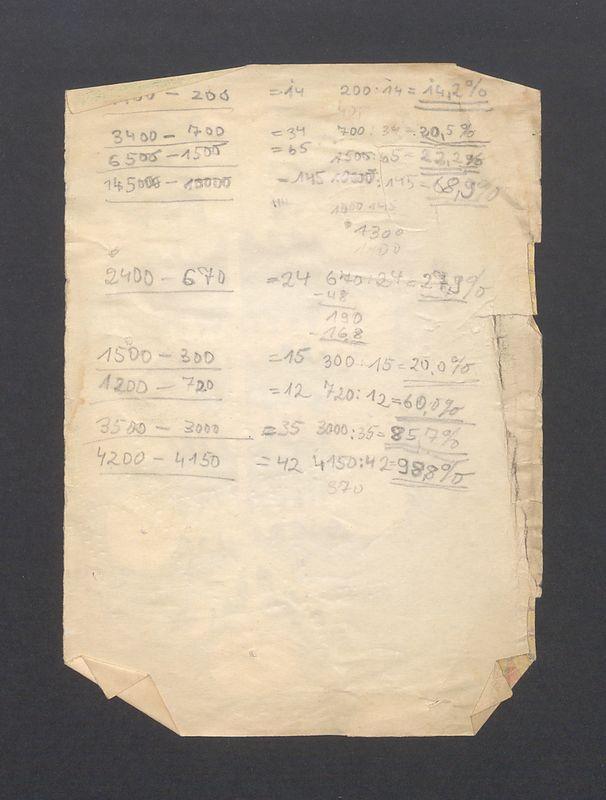 1400 – 200 = 14 200 : 14 = 14,2%
3400 – 700 = 34 700 : 34 = 20,5%
6500 – 1500 = 65 1500 : 65 = 22,2%
145000 – 10000 = 145 10000 : 145 = 68,9%
1000 145
1300
2400 – 670 = 24 670 : 24 = 27,9%
– 48
190
– 16,8
1500 – 300 = 15 300 : 15 = 20,0%
1200 – 720 = 12 720 : 12 = 60,0%
3500 – 3000 = 35 3000 : 35 = 85,7%
4200 – 4150 = 42 4150 : 42 = 98,8%
370